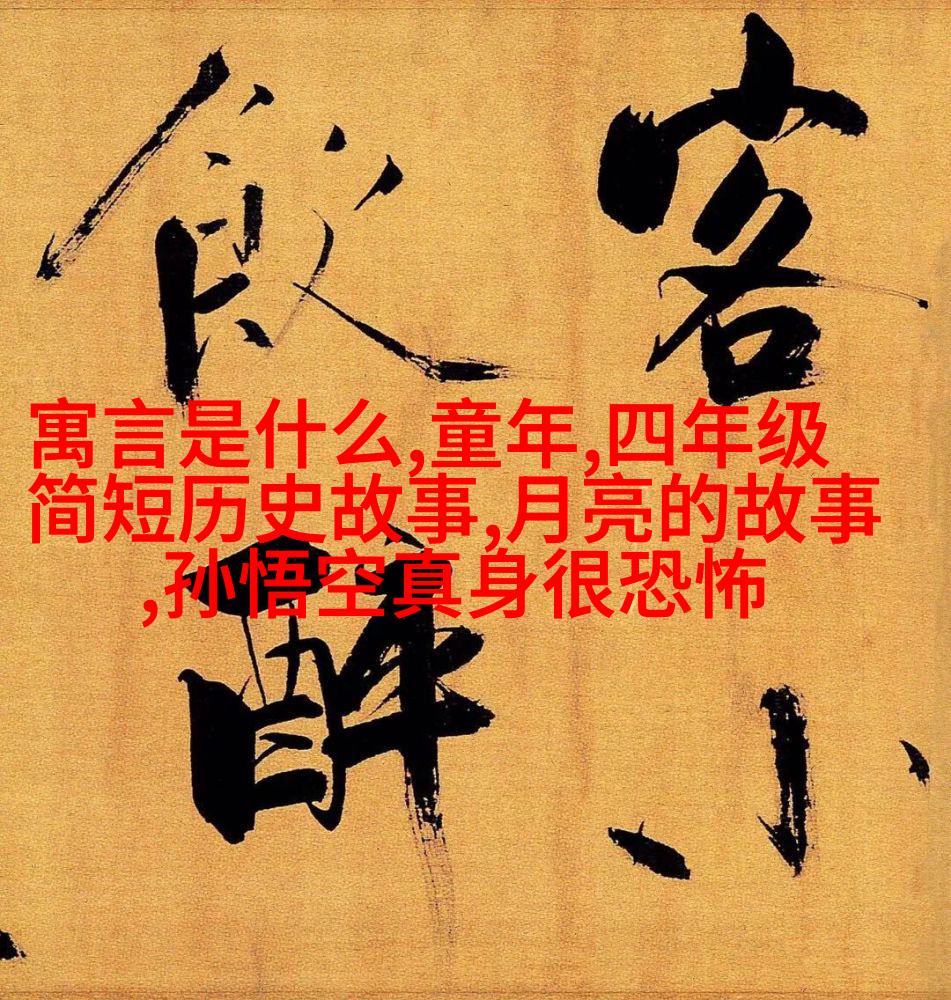 客小
飲醉
寓言是什么,童年,四年级
简短历史故事,月亮的故事
,孙悟空真身很恐怖